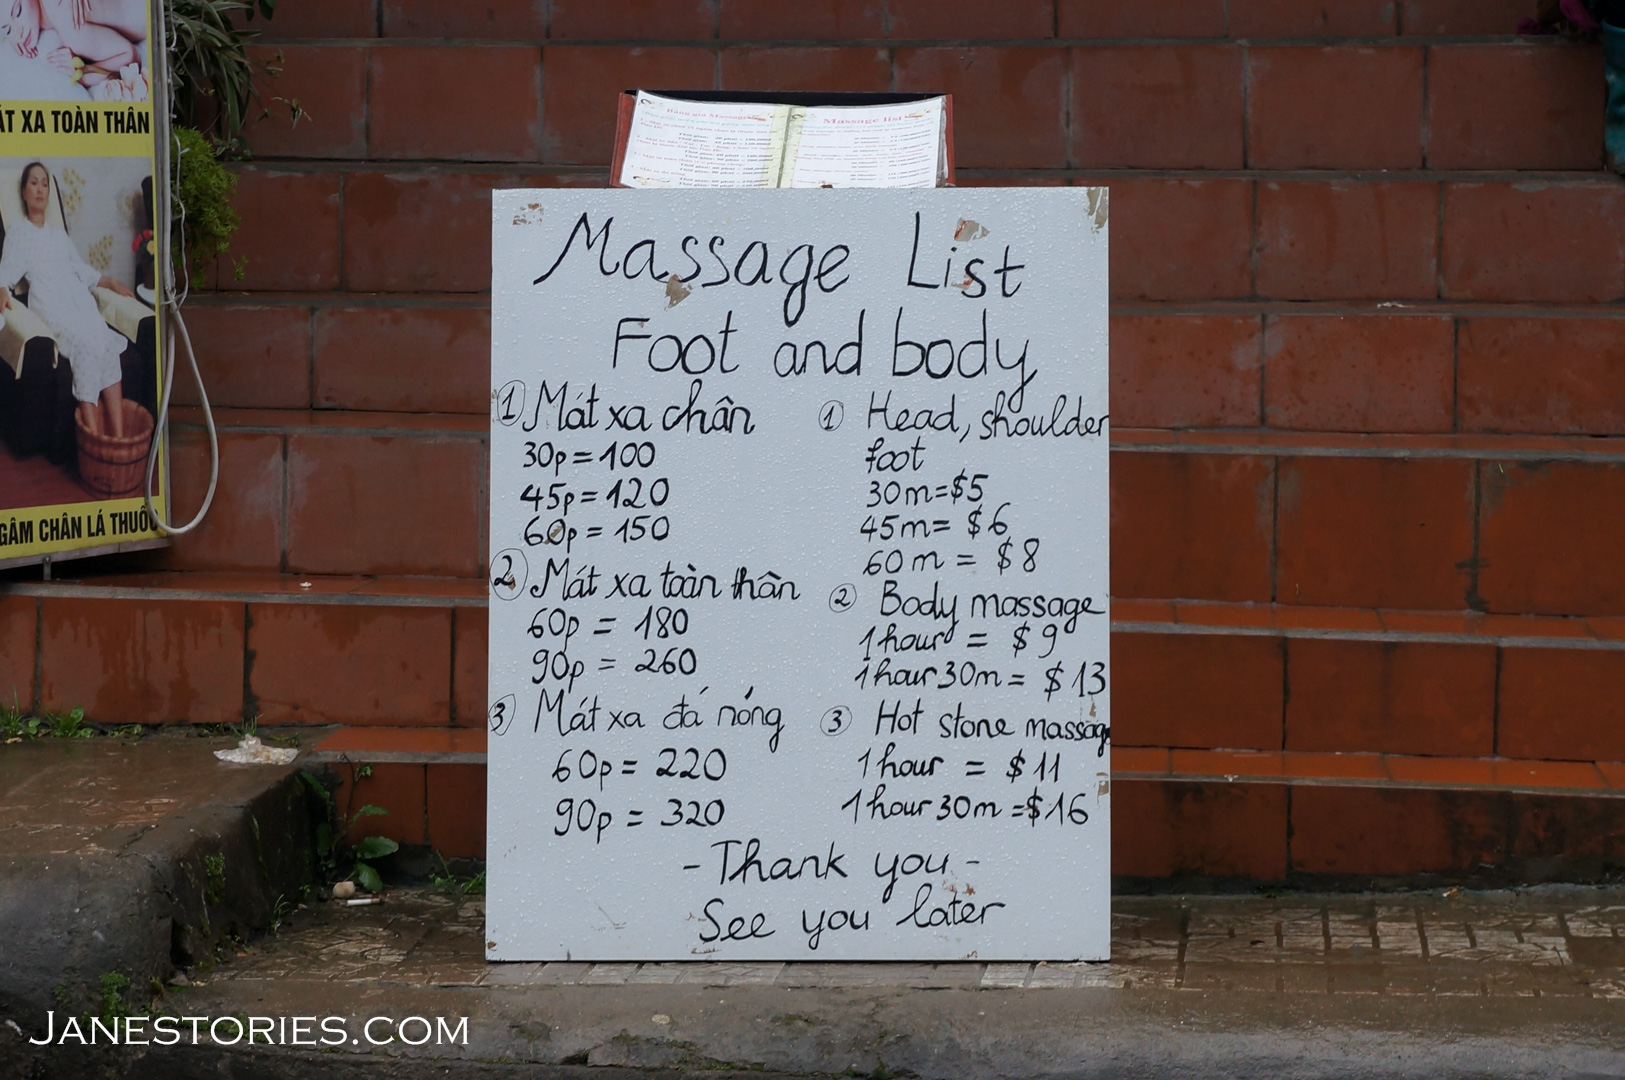 ÁT XA TOÀN THÂN
GÂM CHÂN LÁ THUỐC
Bảng giá Massage
Massage list
Massage List
Foot and body
① Mát xa chân
30p = 100
45p = 120
60p = 150
② Mát xa toàn thân
60p = 180
90p = 260
③ Mát xa đá nóng
60p = 220
90p = 320
① Head, shoulder
foot
30m = $5
45m = $6
60m = $8
② Body massage
1 hour = $9
1 hour 30m = $13
③ Hot stone massage
1 hour = $11
1 hour 30m = $16
- Thank you -
See you later
JANESTORIES.COM